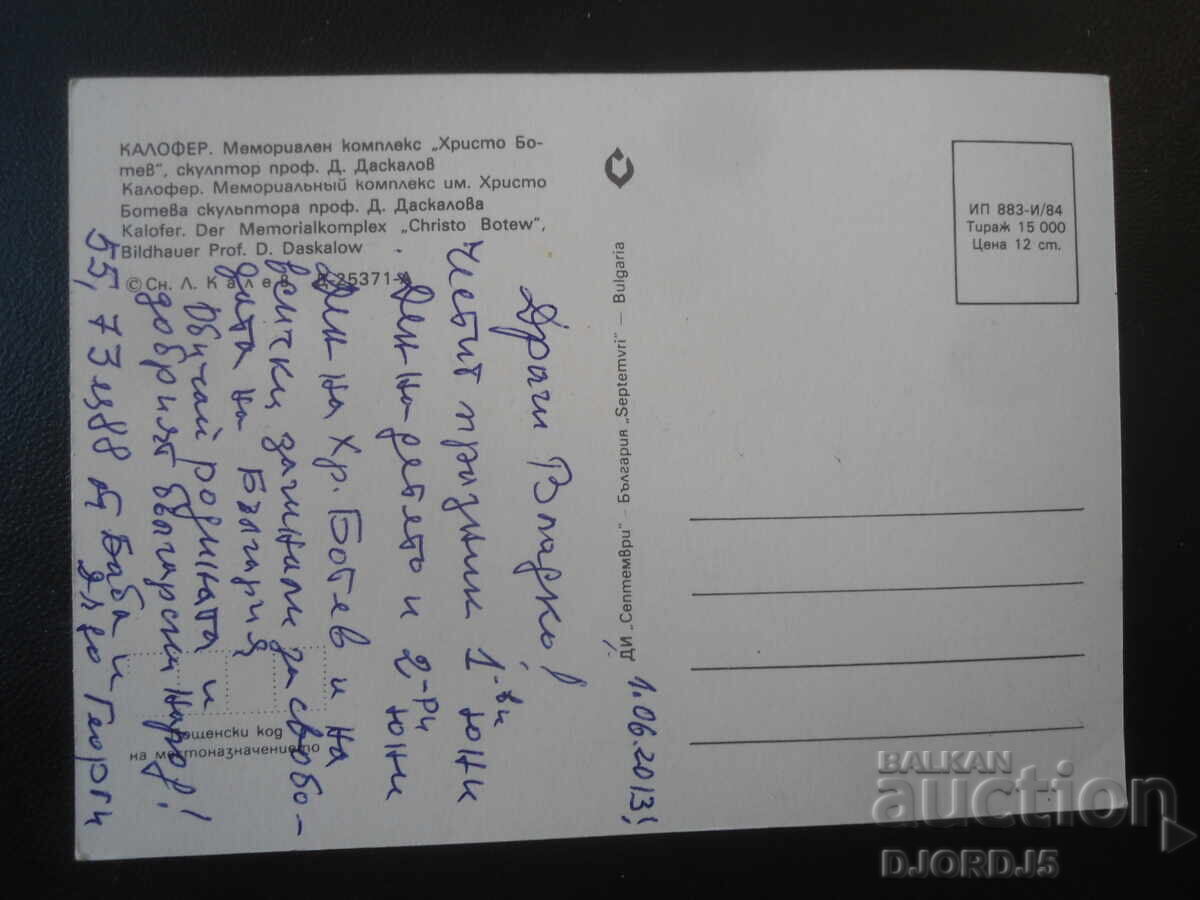 КАЛОФЕР. Мемориален комплекс „Христо Бо-
тев", скулптор проф. Д. Даскалов
Калофер. Мемориальный комплекс им. Христо
Ботева скульптора проф. Д. Даскалова
Kalofer. Der Memorialkomplex „Christo Botew",
Bildhauer Prof. D. Daskalow
© Сн. Л. Калев Д-25371-А
ИП 883-И/84
Тираж 15 000
Цена 12 ст.
ДИ „Септември" – България „Septemvri" – Bulgaria
Драги Владко!
Честит празник 1-ви юни
Ден на детето и 2-ри юни
Ден на Хр. Ботев и на
всички загинали за свобо-
дата на България
Обичай родината и
добрият български народ!
от Баба и
дядо Георги
1.06.2013
Пощенски код
на местоназначението
BALKAN
auction
DJORDJ5